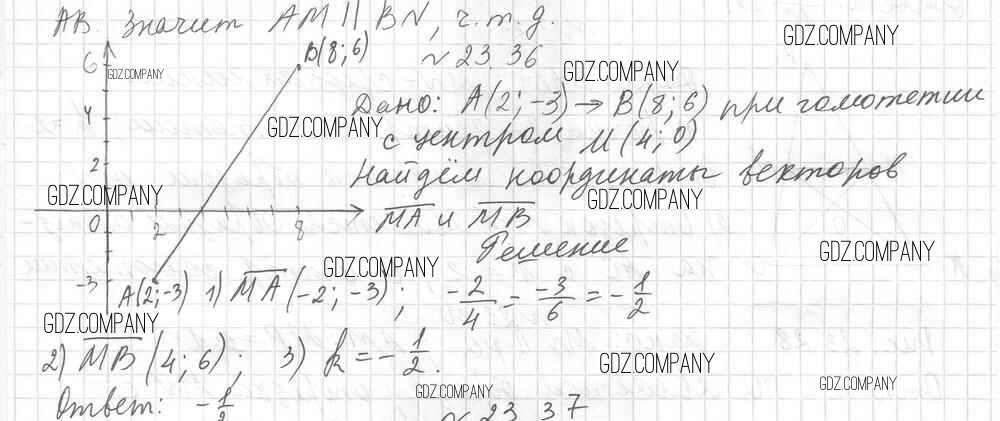 АВ. Значит AM || BN, ч.т.д.
№ 23.36
B(8; 6)
6
4
2
0
2
8
-3
A(2; -3)
Дано: A(2; -3) → B(8; 6) при гомотетии
с центром M(4; 0)
Найдём координаты векторов
MA и MB
Решение
1) MA (-2; -3); -2/4 = -3/6 = -1/2
2) MB (4; 6); 3) k = -1/2.
Ответ: -1/2
№ 23.37
GDZ.COMPANY
GDZ.COMPANY
GDZ.COMPANY
GDZ.COMPANY
GDZ.COMPANY
GDZ.COMPANY
GDZ.COMPANY
GDZ.COMPANY
GDZ.COMPANY
GDZ.COMPANY
GDZ.COMPANY
GDZ.COMPANY